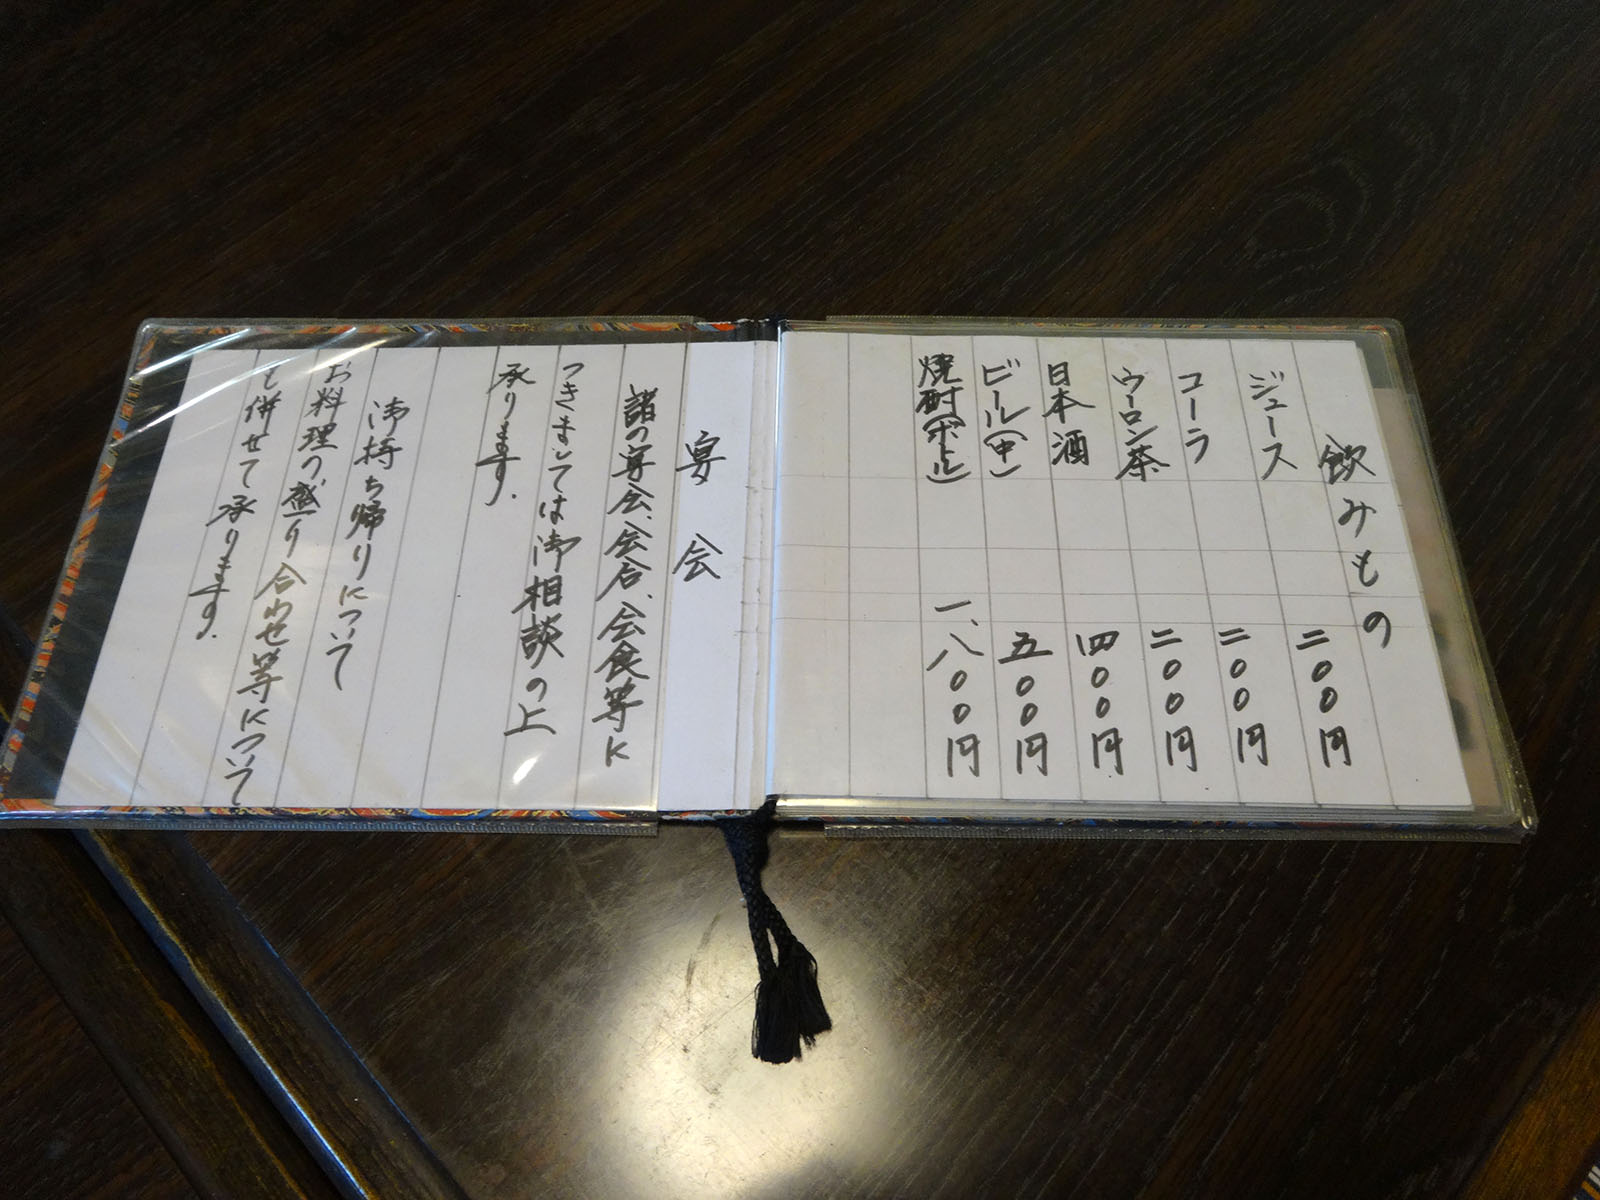 飲みもの
ジュース 二〇〇円
コーラ 二〇〇円
ウーロン茶 二〇〇円
日本酒 四〇〇円
ビール(中) 五〇〇円
焼酎(ボトル) 一、八〇〇円
宴会
諸の宴会、会合、会食等に
つきましては御相談の上
承ります。
御持ち帰りについて
お料理の盛り合わせ等について
も併せて承ります。